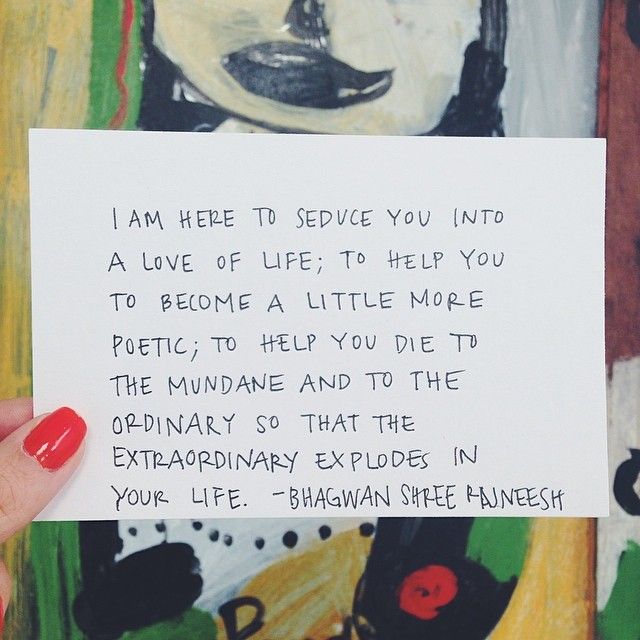 I AM HERE TO SEDUCE YOU INTO
A LOVE OF LIFE; TO HELP YOU
TO BECOME A LITTLE MORE
POETIC; TO HELP YOU DIE TO
THE MUNDANE AND TO THE
ORDINARY SO THAT THE
EXTRAORDINARY EXPLODES IN
YOUR LIFE. -BHAGWAN SHREE RAJNEESH